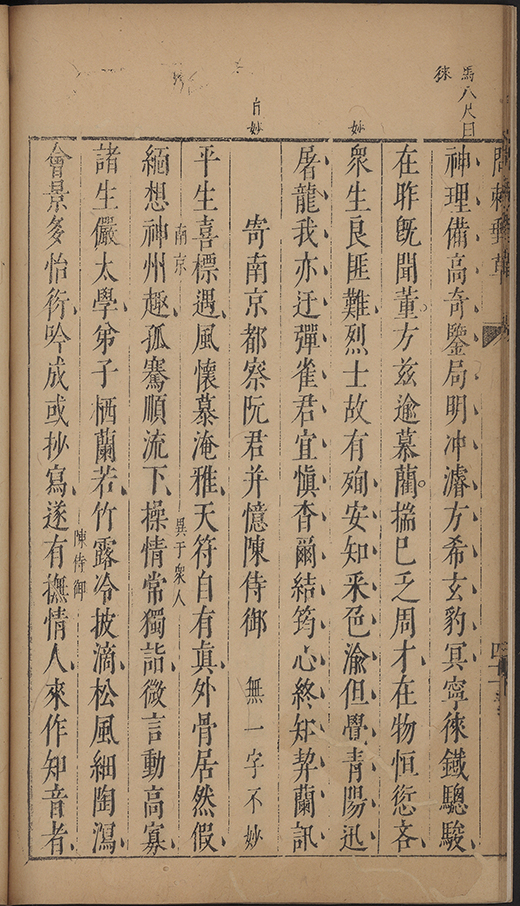 馬八尺曰
徠
妙
白妙
問棘郵草
神理備高奇鑒局明冲濬方希玄豹冥寧徠鐡驄駿
在昨既聞董方兹逾慕藺揣已乏周才在物恒愆吝
衆生良匪難烈士故有殉安知釆色渝但覺青陽迅
屠龍我亦迂彈雀君宜愼杳爾結筠心終知契蘭訊
寄南京都察阮君并憶陳侍御 無一字不妙
平生喜標遇風懷慕淹雅天符自有真外骨居然假
南京 異于衆人
緬想神州趣孤騫順流下操情常獨詣微言動高寡
諸生儼太學弟子栖蘭若竹露冷披滴松風細陶瀉
陳侍御
會景多怡衍吟成或抄寫遂有撫情人來作知音者